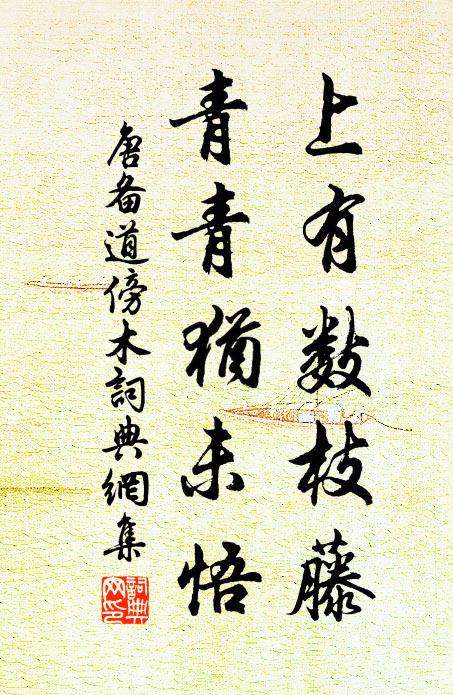 上有数枝藤
青青猶未悟
唐备道傍木詞典網集
詞典网印